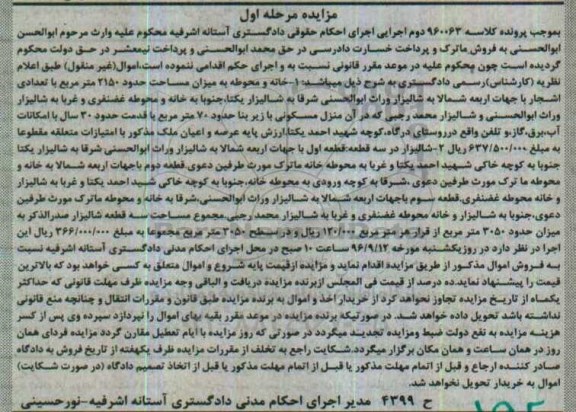 مزایده مرحله اول
بموجب پرونده کلاسه ۹۶۰۰۶۳ دوم اجرایی اجرای احکام حقوقی دادگستری آستانه اشرفیه محکوم علیه وارث مرحوم ابوالحسن
ابوالحسنی به فروش ماترک و پرداخت خسارت دادرسی در حق محمد ابوالحسنی و پرداخت نیمعشر در حق دولت محکوم
گردیده است چون محکوم علیه در موعد مقرر قانونی نسبت به و اجرای حکم اقدامی ننموده است،اموال(غیر منقول) طبق اعلام
نظریه (کارشناس)رسمی دادگستری به شرح ذیل میباشد: ۱-خانه و محوطه به میزان مساحت حدود ۲۱۵۰ متر مربع با تعدادی
اشجار با جهات اربعه شمالا به شالیزار وراث ابوالحسنی شرقا به شالیزار یکتا،جنوبا به خانه و محوطه غضنفری و غربا به شالیزار
وراث ابوالحسنی و شالیزار محمد رجبی که در آن منزل مسکونی با زیر بنا حدود ۷۰ متر مربع با قدمت حدود ۳۰ سال با امکانات
آب،برق،گاز،و تلفن واقع درروستای درگاه،کوچه شهید احمد یکتا،ارزش پایه عرصه و اعیان ملک مذکور با امتیازات متعلقه مقطوعا
به مبلغ ۶۳۷/۵۰۰/۰۰۰ ریال ۲-شالیزار در سه قطعه:قطعه اول با جهات اربعه شمالا به شالیزار وراث ابوالحسنی شرقا به شالیزار یکتا
جنوبا به کوچه خاکی شهید احمد یکتا و غربا به محوطه خانه ماترک مورث طرفین دعوی.قطعه دوم باجهات اربعه شمالا به خانه و
محوطه ما ترک مورث طرفین دعوی ،شرقا به کوچه ورودی به محوطه خانه،جنوبا به کوچه خاکی شهید احمد یکتا و غربا به شالیزار
و خانه محوطه غضنفری.قطعه سوم باجهات اربعه شمالا به شالیزار وراث ابوالحسنی،شرقا به خانه و محوطه ماترک مورث طرفین
دعوی،جنوبا به شالیزار و خانه محوطه غضنفری و غربا به شالیزار محمد رجبی.مجموع مساحت سه قطعه شالیزار صدرالذکر به
میزان حدود ۳۰۵۰ متر مربع از قرار هر متر مربع ۱۲۰/۰۰۰ ریال و در سطح ۳۰۵۰ متر مربع مجموعا به مبلغ ۳۶۶/۰۰۰/۰۰۰ ریال این
اجرا در نظر دارد در روزیکشنبه مورخه ۹۶/۹/۱۲ ساعت ۱۰ صبح در محل اجرای احکام مدنی دادگستری آستانه اشرفیه نسبت
به فروش اموال مذکور از طریق مزایده اقدام نماید و مزایده ازقیمت پایه شروع و اموال متعلق به کسی خواهد بود که بالاترین
قیمت را پیشنهاد نماید.ده درصد از قیمت فی المجلس ازبرنده مزایده دریافت و الباقی وجه مزایده ظرف مهلت قانونی که حداکثر
یکماه از تاریخ مزایده تجاوز نخواهد کرد از خریدار اخذ و اموال به برنده مزایده طبق قانون و مقررات انتقال و چنانچه منع قانونی
نداشته باشد تحویل داده خواهد شد. در صورتیکه برنده مزایده در موعد مقرر بقیه بهای اموال را نپردازد سپرده وی پس از کسر
هزینه مزایده به نفع دولت ضبط ومزایده تجدید میگردد در صورتی که روز مزایده با ایام تعطیل مقارن گردد مزایده فردای همان
روز در همان ساعت و همان مکان برگزار میگردد.شکایت راجع به تخلف از مقررات مزایده ظرف یکهفته از تاریخ فروش به دادگاه
صادر کننده ارجاع و قبل از اتمام مهلت مذکور یا قبل از اتمام مهلت مذکور یا قبل از اتخاذ تصمیم دادگاه (در صورت شکایت)
اموال به خریدار تحویل نخواهد شد.
ح ۴۳۹۹ مدیر اجرای احکام مدنی دادگستری آستانه اشرفیه-نورحسینی